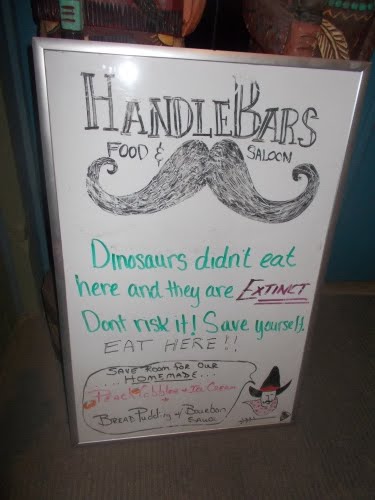 HANDLEBARS
FOOD & SALOON
Dinosaurs didn't eat
here and they are EXTINCT
Dont risk it! Save yourself.
EAT HERE!!
SAVE ROOM FOR OUR
... HOMEMADE...
Peach Cobbler w/ Ice Cream
BREAD Pudding w/ Bourbon
SAUCE